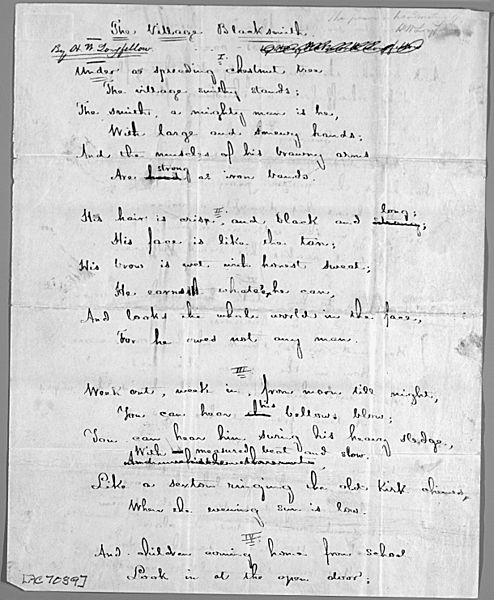 The Village Blacksmith
By H. W. Longfellow.
I
Under a spreading chestnut tree
The village smithy stands;
The smith, a mighty man is he,
With large and sinewy hands;
And the muscles of his brawny arms
Are hard strong as iron bands.
II
His hair is crisp, and black and long;
His face is like the tan;
His brow is wet with honest sweat;
He earns whate'er he can,
And looks the whole world in the face,
For he owes not any man.
III
Week out, week in, from morn till night,
You can hear his bellows blow;
You can hear him swing his heavy sledge,
With measured beat and slow.
Like a sexton ringing the old kirk chimes,
When the evening sun is low.
IV
And children coming home from school
Look in at the open door;
[AC7089]